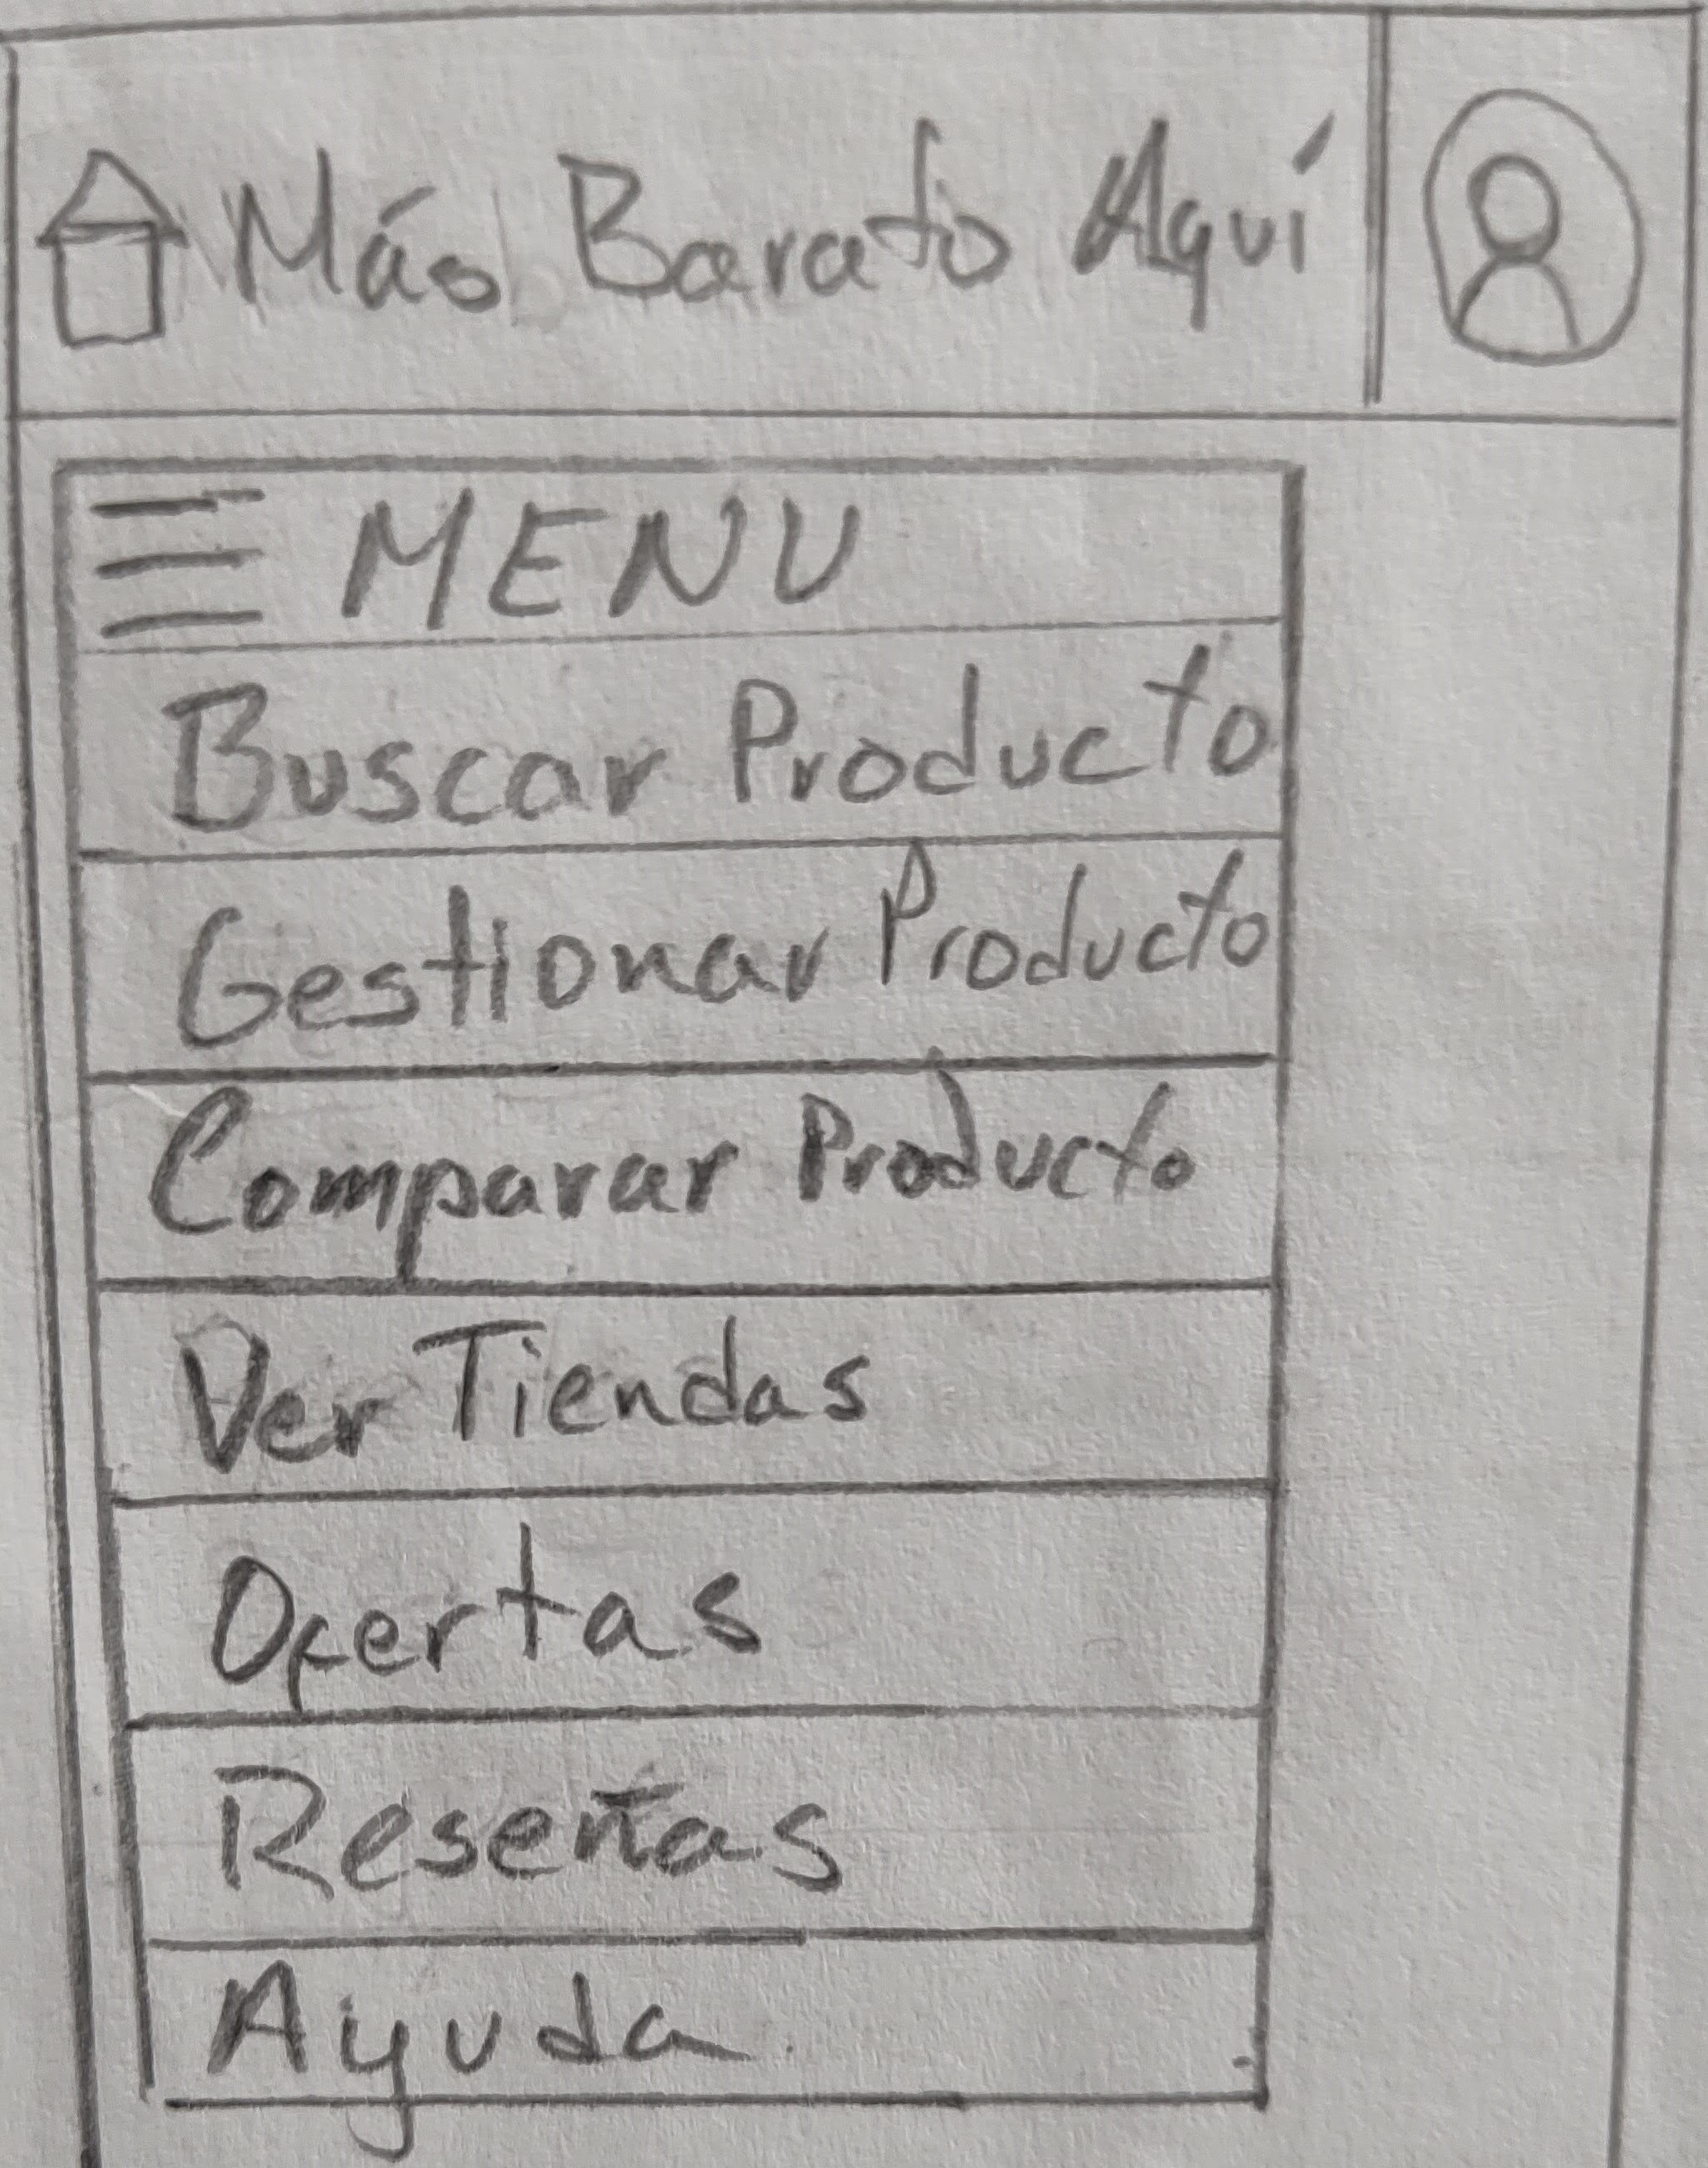 Más Barato Aquí
MENU
Buscar Producto
Gestionar Producto
Comparar Producto
Ver Tiendas
Ofertas
Reseñas
Ayuda